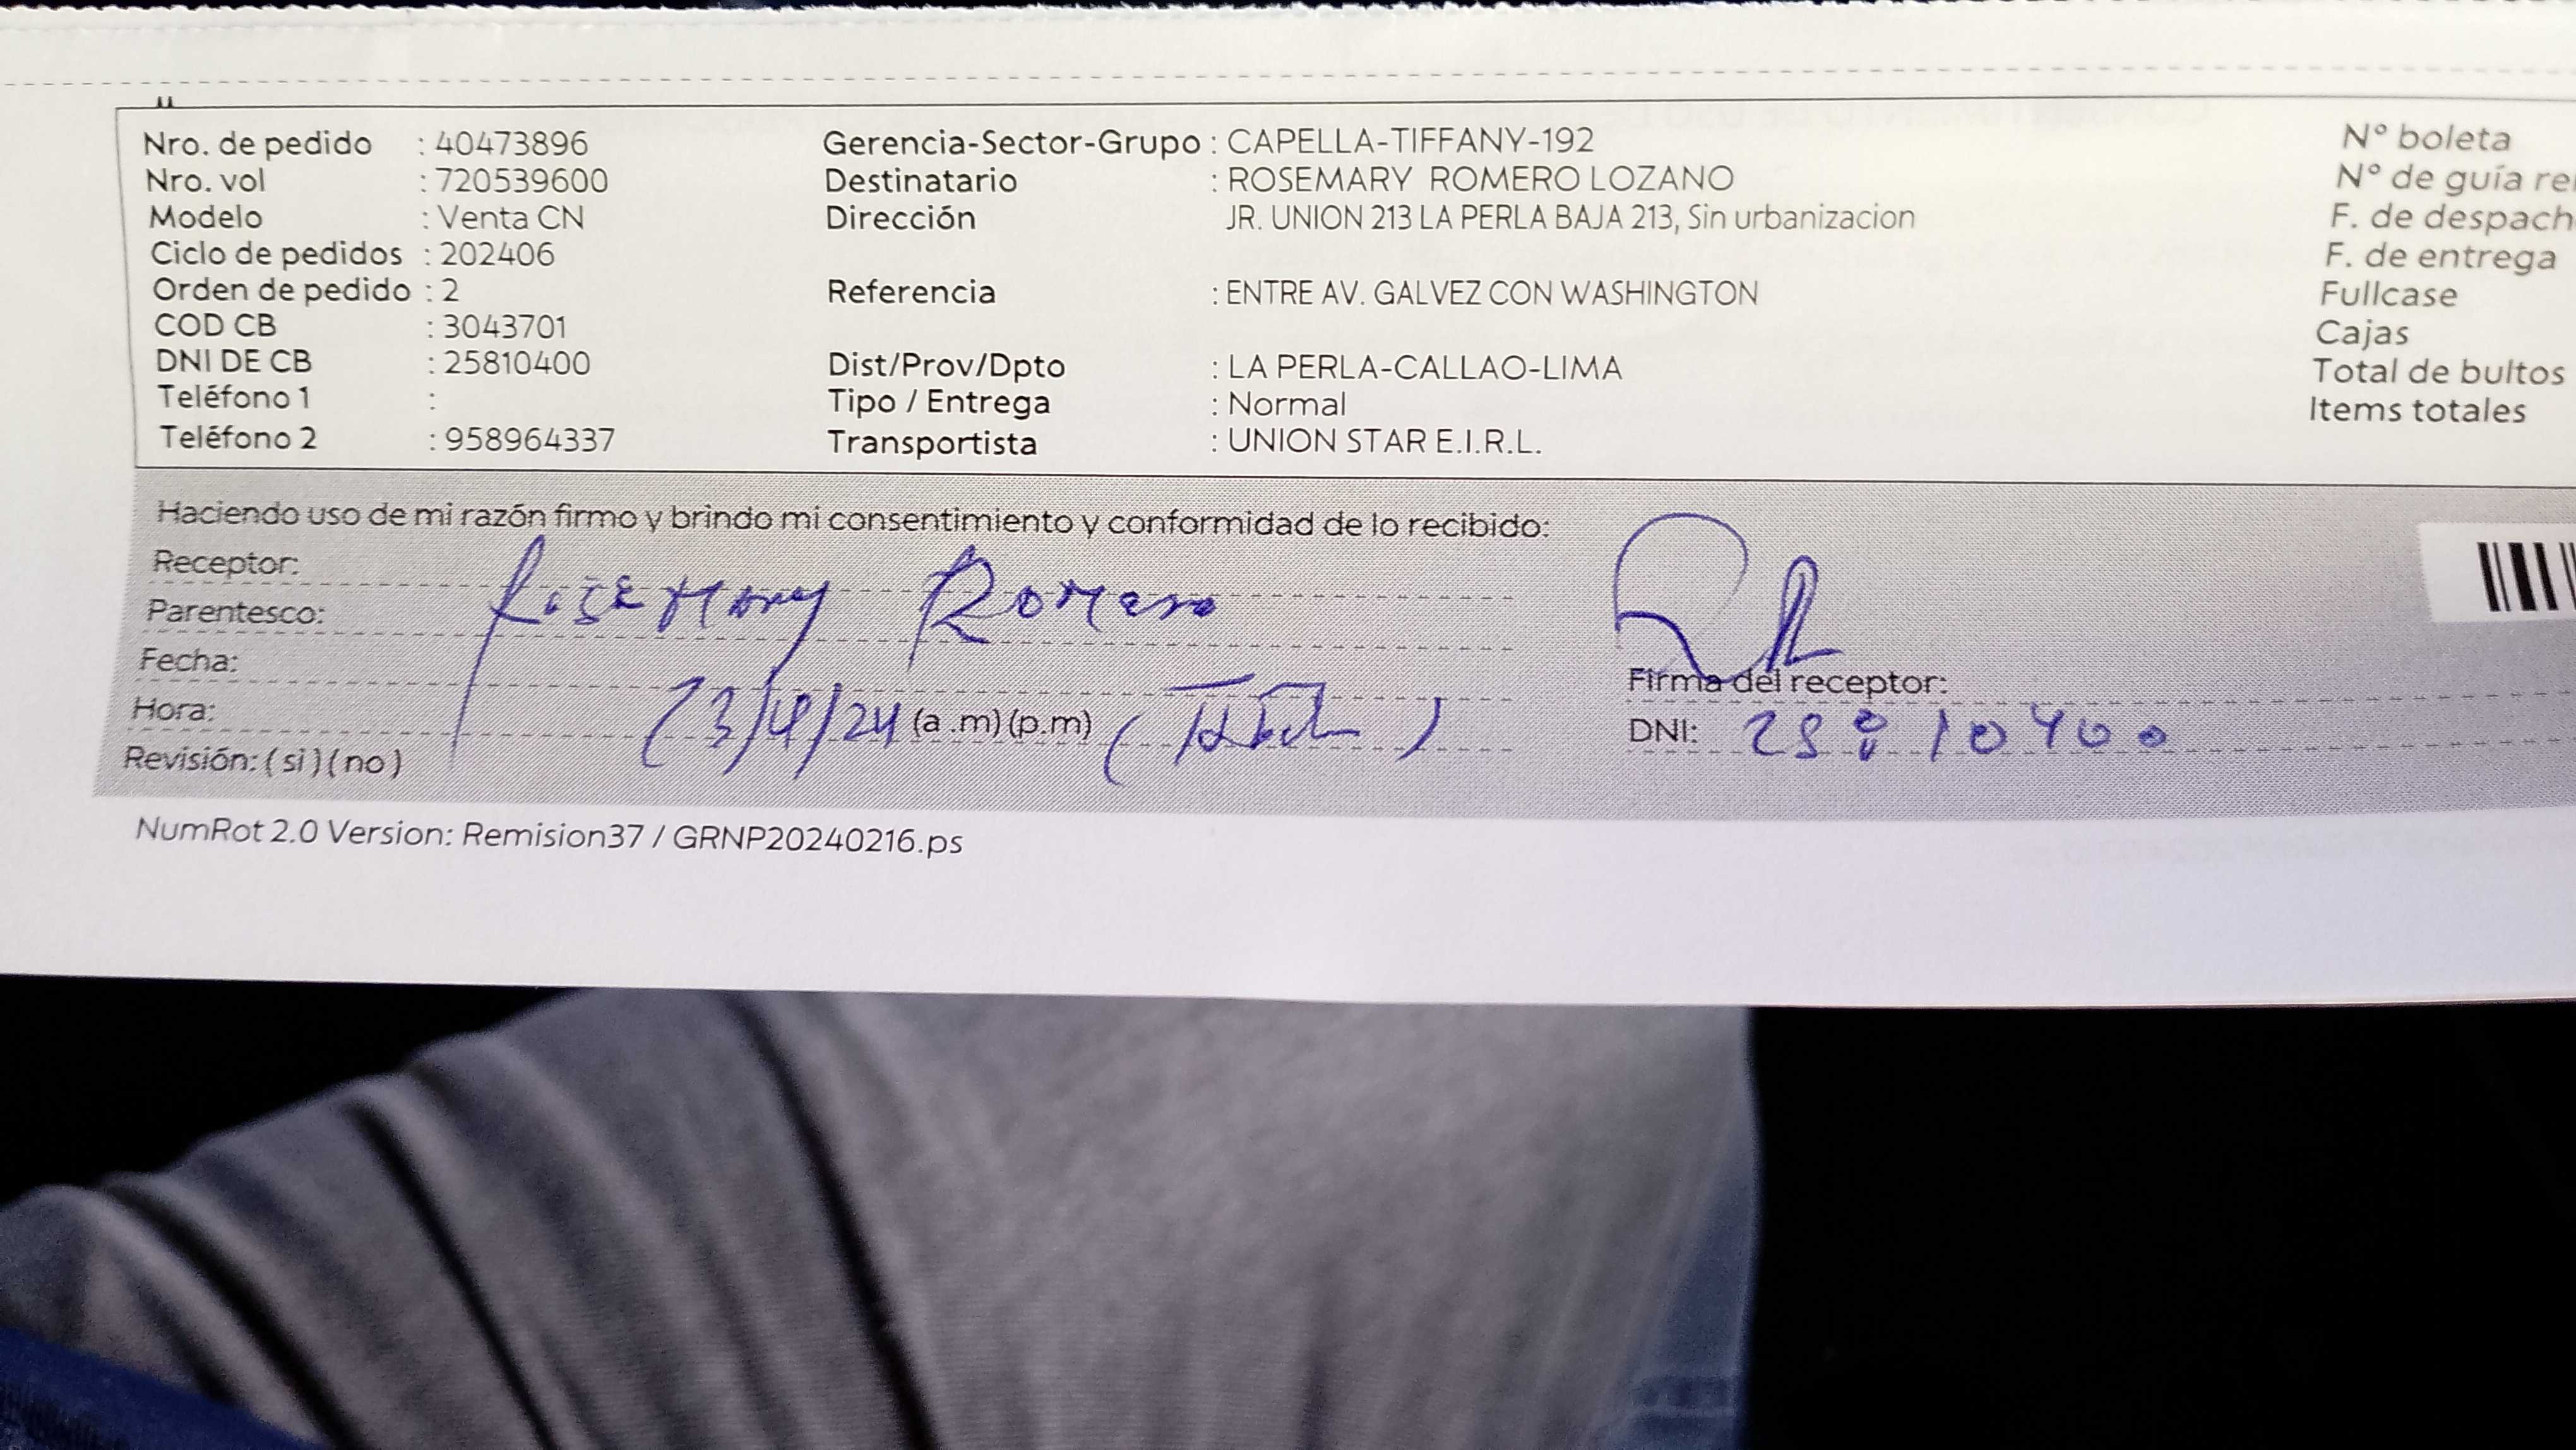 Nro. de pedido : 40473896 Gerencia-Sector-Grupo : CAPELLA-TIFFANY-192 N° boleta
Nro. vol : 720539600 Destinatario : ROSEMARY ROMERO LOZANO N° de guía
Modelo : Venta CN Dirección JR. UNION 213 LA PERLA BAJA 213, Sin urbanizacion F. de despach
Ciclo de pedidos : 202406 F. de entrega
Orden de pedido : 2 Referencia : ENTRE AV. GALVEZ CON WASHINGTON Fullcase
COD CB : 3043701 Cajas
DNI DE CB : 25810400 Dist/Prov/Dpto : LA PERLA-CALLAO-LIMA Total de bultos
Teléfono 1 : Tipo / Entrega : Normal Items totales
Teléfono 2 : 958964337 Transportista : UNION STAR E.I.R.L.
Haciendo uso de mi razón firmo y brindo mi consentimiento y conformidad de lo recibido:
Receptor: RoseMary Romero
Parentesco:
Fecha:
Firma del receptor:
Hora: (3/4/24 (a.m)(p.m)
DNI: 25810400
Revisión: (si)(no)
NumRot 2.0 Version: Remision37 / GRNP20240216.ps